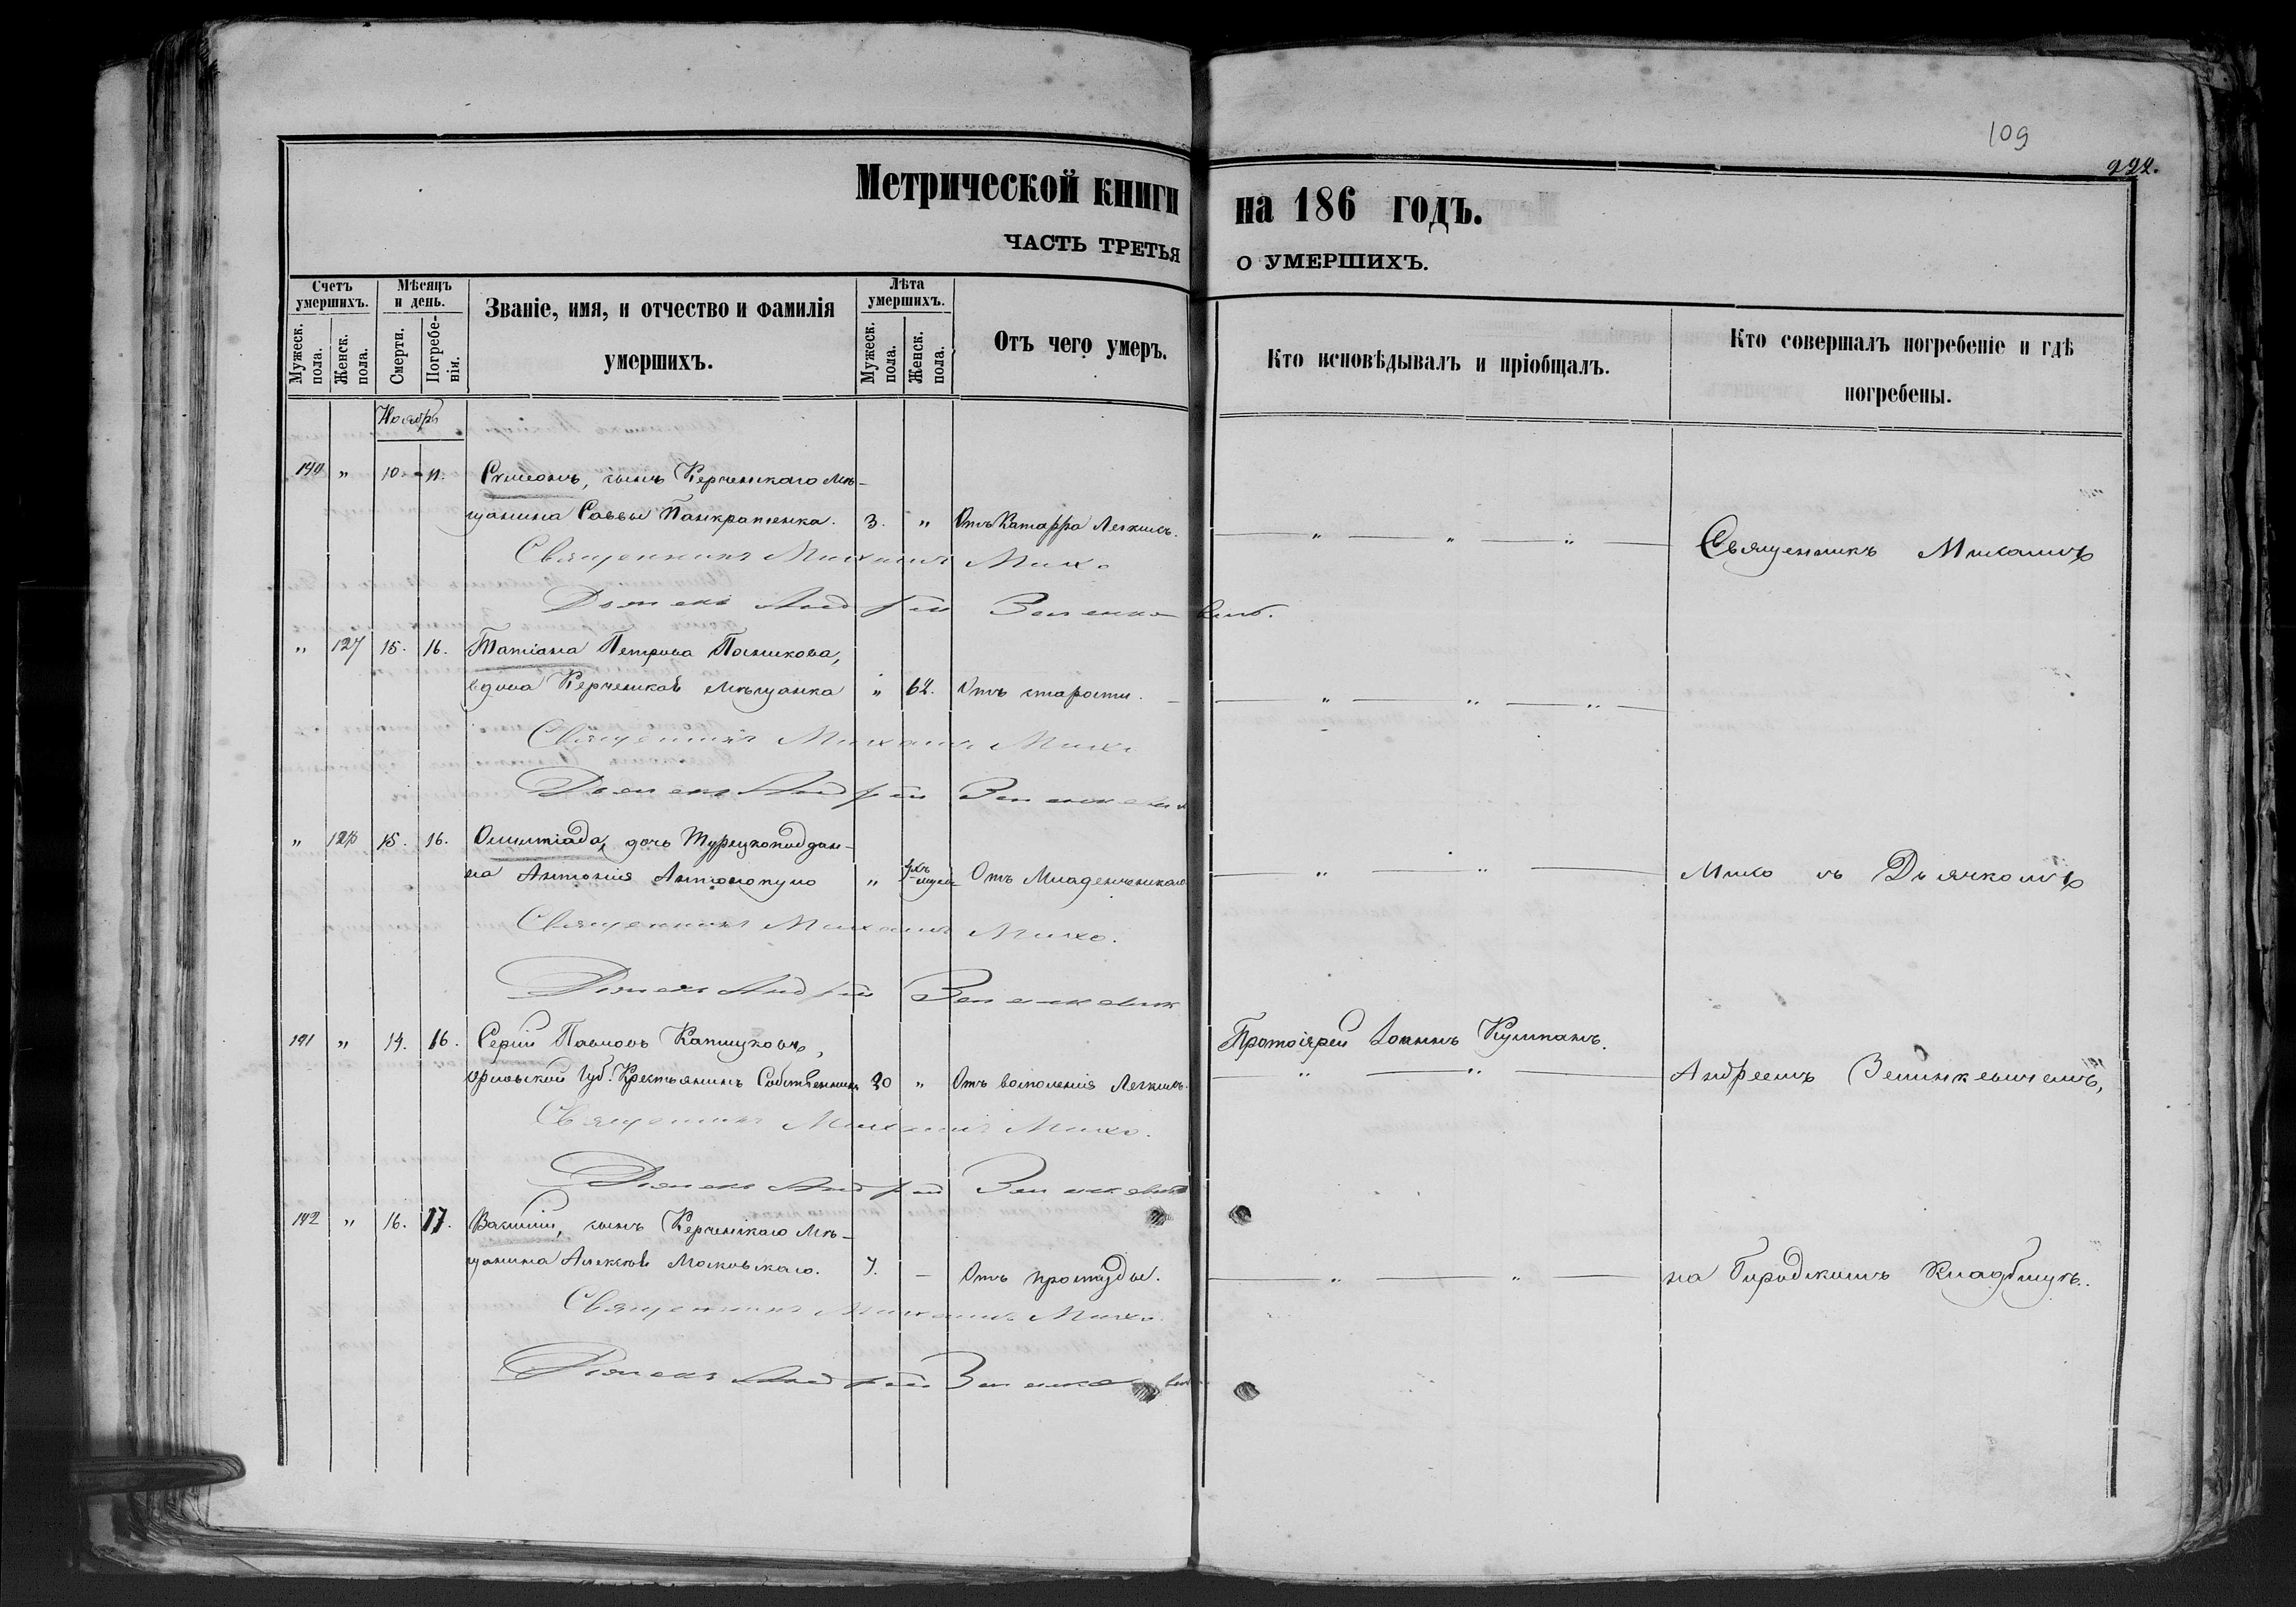 109
222.
Метрической книги на 186 годъ.
ЧАСТЬ ТРЕТЬЯ О УМЕРШИХЪ.
Счетъ умершихъ.
Мужеск. пола.
Женск. пола.
Мѣсяцъ и день.
Смерти.
Погребе-
нія.
Званіе, имя, и отчество и фамилія
умершихъ.
Лѣта умершихъ.
Мужеск. пола.
Женск. пола.
Отъ чего умеръ.
Кто исповѣдывалъ и пріобщалъ.
Кто совершалъ погребеніе и гдѣ
погребены.
Ноябрь
140 " 10. 11. Симеонъ, сынъ Керченскаго Мѣ-
щанина Саввы Панкратенка. 3. " Отъ Катарра Легкихъ. " " " Священникъ Михаилъ
Священникъ Михаилъ Михо
Дьячекъ Андрей Зелинкевич.
" 127 15. 16. Татіана Петрова
вдова Керченская Мѣщанка " 62. Отъ старости. " " "
Священникъ Михаилъ Михо
Дьячекъ Андрей Зелинкевич
" 128 15. 16. Олимпіада, дочь Турецкоподдан-
на Антонія Антонопуло " Отъ Младенческаго " " Михо съ Дьячкомъ
Священникъ Михаилъ Михо.
Дьячекъ Андрей Зелинкевич
141 " 14. 16. Сергій Павловъ Протоіерей Іоаннъ Кумпанъ.
Орловской Губ. Крестьянинъ Собственникъ 20 " Отъ воспаленія Легкихъ. " " Андреемъ Зелинкевичемъ,
Священникъ Михаилъ Михо.
Дьячекъ Андрей Зелинкевич
142 " 16. 17. Василій, сынъ Керченскаго Мѣ-
щанина Алексѣя Московскаго. 7. — Отъ простуды. " " на Городскомъ Кладбищѣ.
Священникъ Михаилъ Михо.
Дьячекъ Андрей Зелинкевич